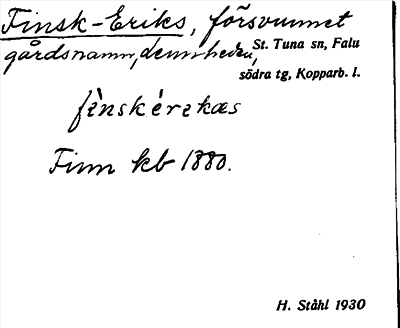 Finsk-Eriks, försvunnet
gårdsnamn, St. Tuna sn, Falu
södra tg, Kopparb. l.
fìnskérɛkæs
Finn kb 1880.
H. Ståhl 1930